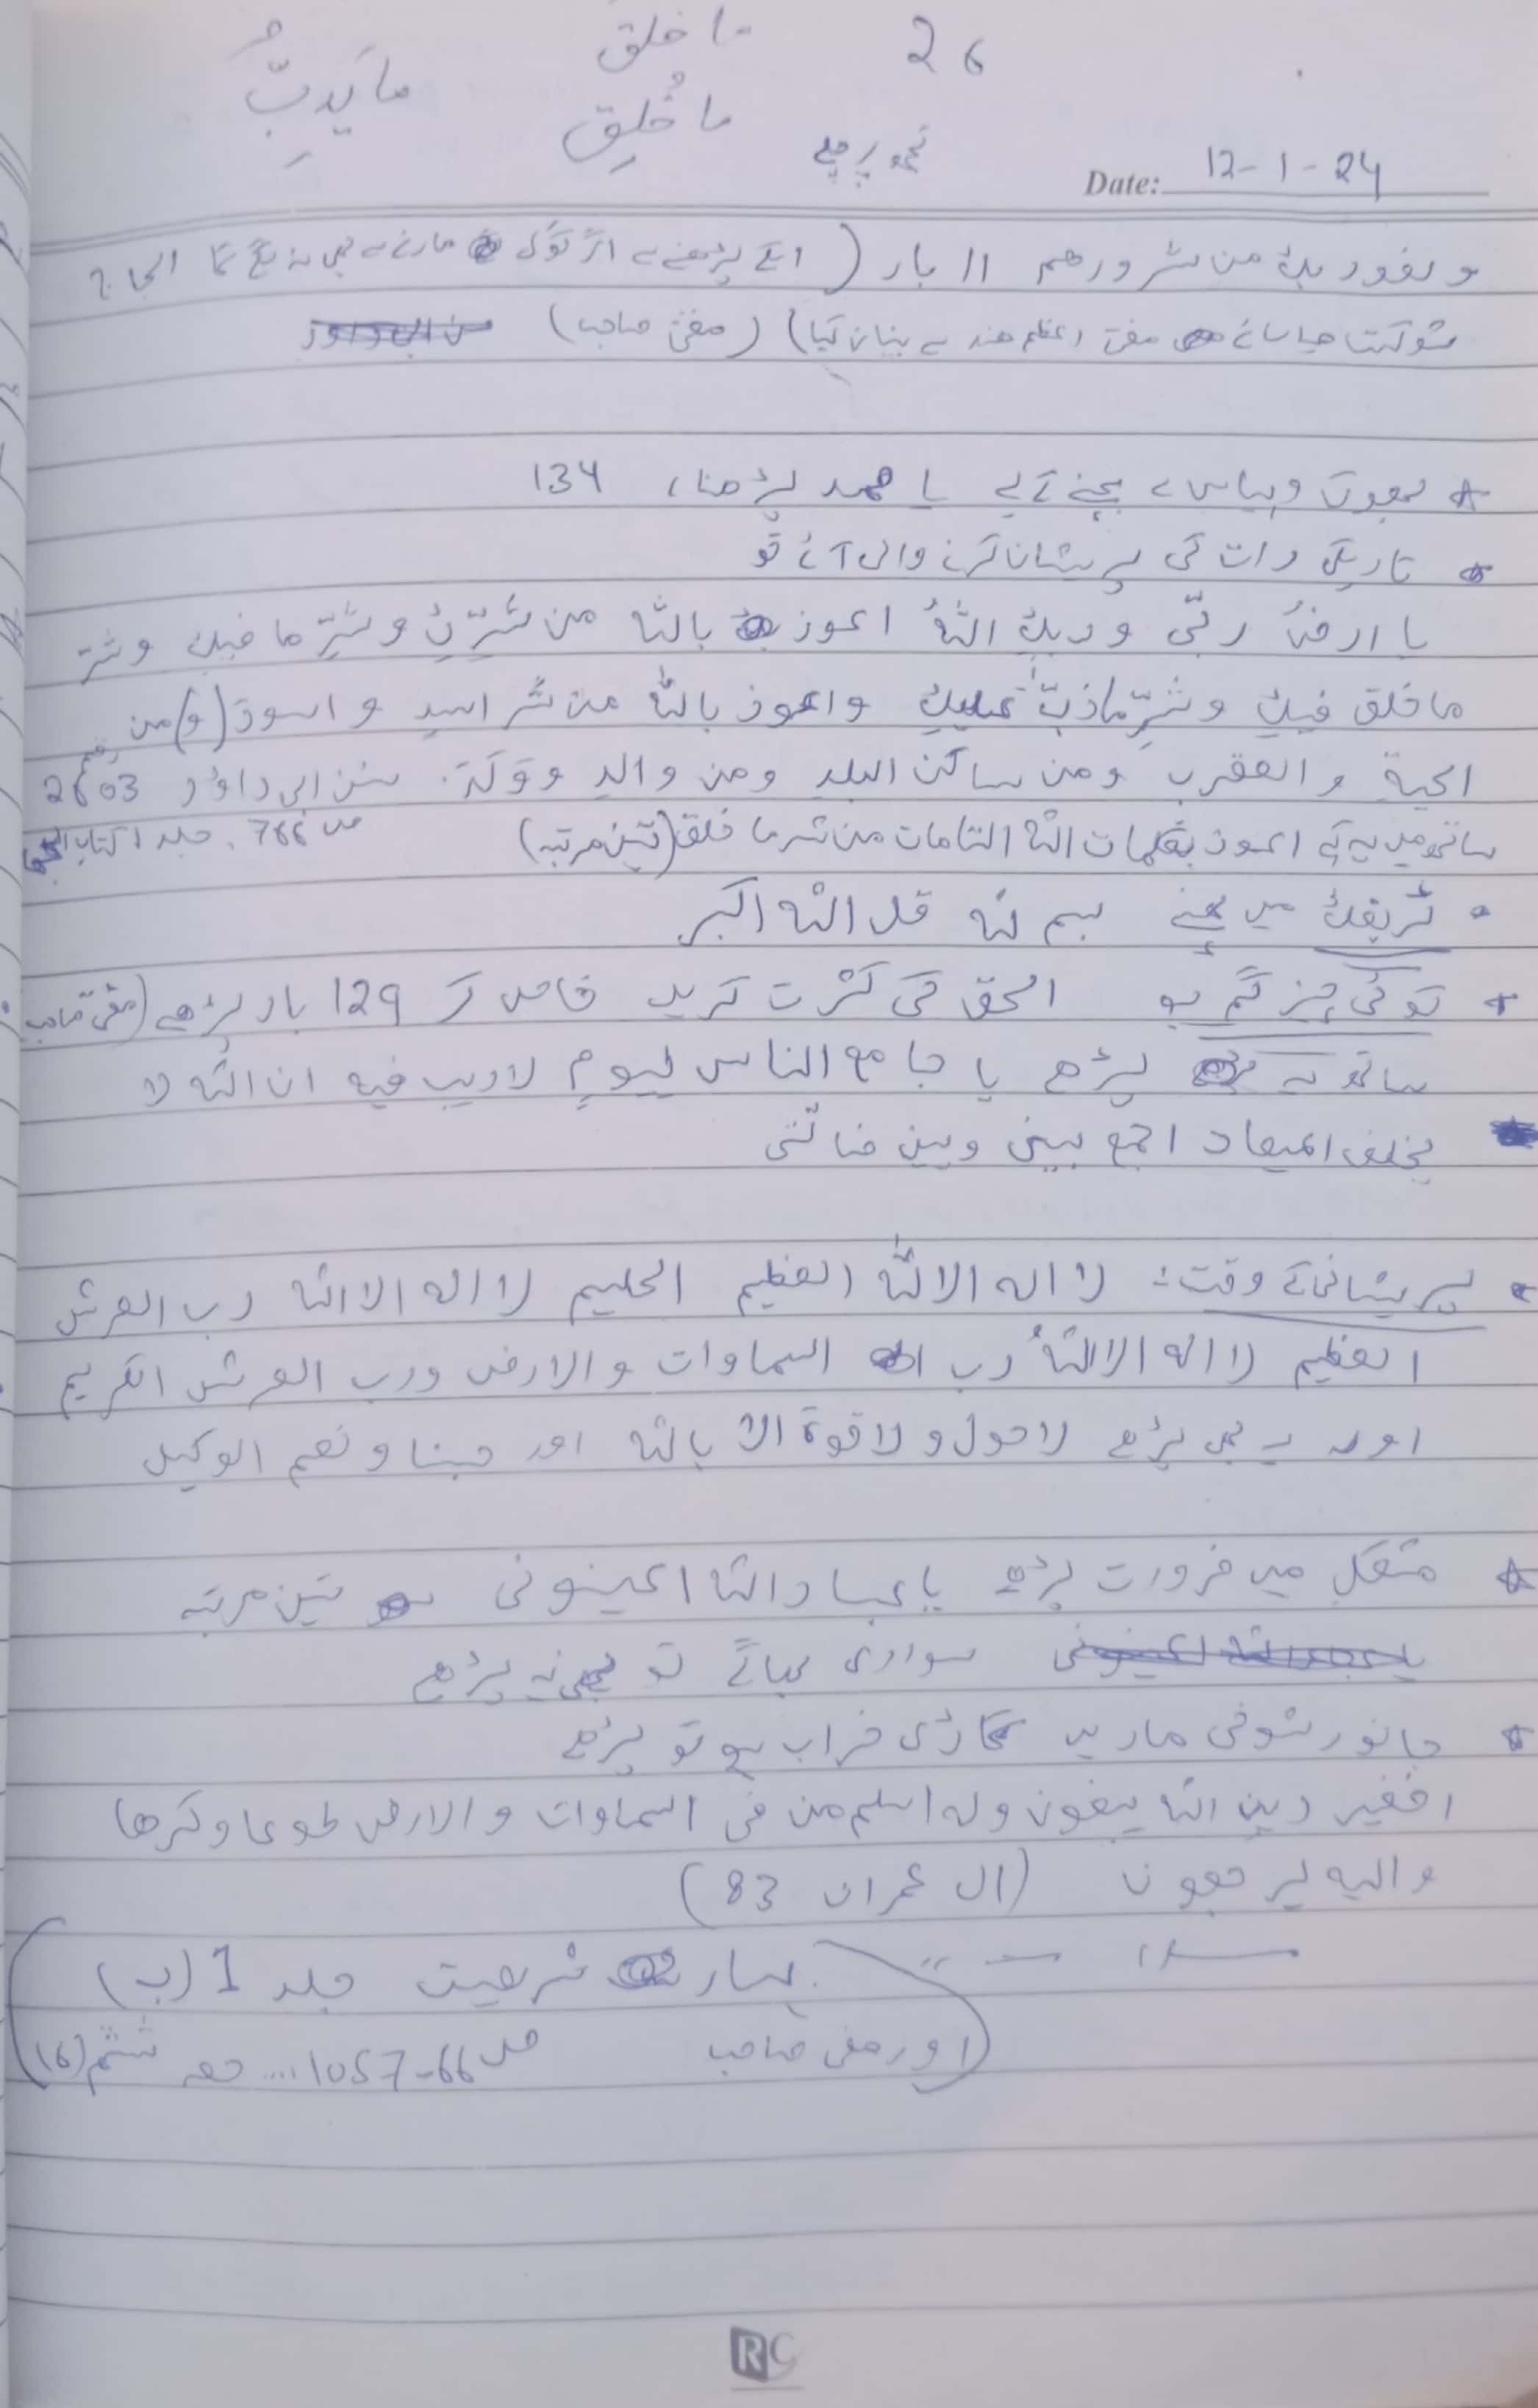 26
ما خلق
ما خُلِق
ما یَدِبُّ
Date: 12-1-24
و نعوذ بک من شرورهم 11 بار ( اسکے پڑھنے سے اگر کوئی مارنے سے بھی نہ الحاج
شوکت حیات مفتی اعظم ہند سے بیان کیا) (مفتی صاحب)
* بھوک و پیاس سے بچنے کے لیے یا صمد پڑھنا، 134
* تاریکی رات کی پریشان کرنے والی آئے تو
یا ارض ربّی و ربک اللهُ اعوذ بالله من شرِّکِ و شرِّ ما فیک و شر
ما خلق فیک و شرِّ ما دَبّ علیک و اعوذ بالله من شر اسدٍ و اسود (و) من
الحیة و العقرب و من ساکن البلد و من والد و ولد۔ سنن ابی داؤد رقم 2603
ساتھ میں یہ کہے اعوذ بکلمات الله التامات من شر ما خلق (تین مرتبہ) ص 766، جلد 1 کتاب
* ٹریفک میں بسم لله قل الله اکبر
* کوئی چیز گم ہو الحق کی کثرت کریں خاص کر 129 بار پڑھے (مفتی صاحب)
ساتھ یہ پڑھے یا جامع الناس لیومٍ لا ریب فیه ان الله لا
یخلف المیعاد اجمع بینی و بین ضالتی
* پریشانی کے وقت: لا اله الا الله العظیم الحلیم لا اله الا الله رب العرش
العظیم لا اله الا اللهُ رب السماوات و الارض و رب العرش الکریم
اور یہ بھی پڑھے لا حول و لا قوة الا بالله اور حسبنا و نعم الوکیل
* مشکل میں ضرورت پڑے یا عباد الله اعینونی تین مرتبہ
سواری بھاگے تو بھی یہ پڑھے
* جانور شوخی ماریں گاڑی خراب ہو تو پڑھے
افغیر دین الله یبغون و له اسلم من فی السماوات و الارض طوعا و کرھا
و الیه یرجعون (ال عمران 83)
بہار شریعت جلد 1 (ب)
(اور مفتی صاحب ص 66-1057 .... حصہ ششم (6)
RC